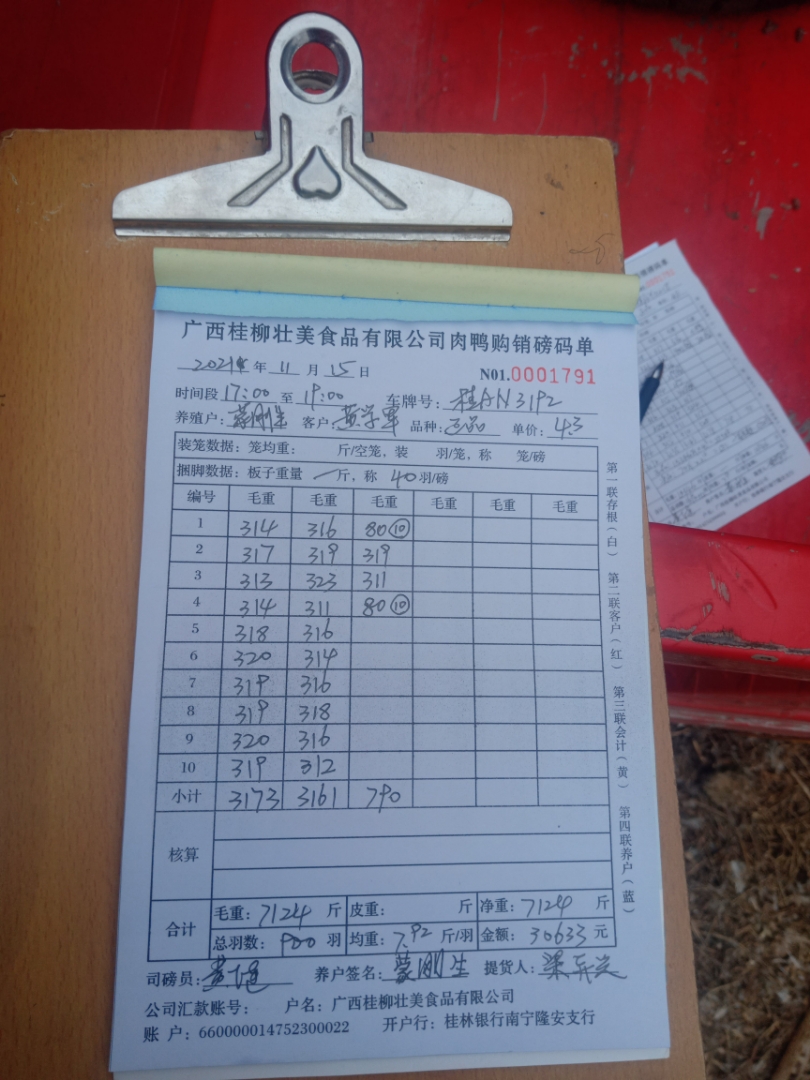 广西桂柳壮美食品有限公司肉鸭购销磅码单
2021年 11 月 15 日 N01.0001791
时间段 17:00 至 19:00 车牌号: 桂AN3192
养殖户: 蒙刚生 客户: 黄学军 品种: 单价: 4.3
装笼数据: 笼均重: 斤/空笼, 装 羽/笼, 称 笼/磅
捆脚数据: 板子重量 一斤, 称 40羽/磅
编号 毛重 毛重 毛重 毛重 毛重 毛重
1 314 316 80⑩
2 317 319 319
3 313 323 311
4 314 311 80⑩
5 318 316
6 320 314
7 319 316
8 319 318
9 320 316
10 319 312
小计 3173 3161 790
核算
合计 毛重: 7124 斤 皮重: 斤 净重: 7124 斤
总羽数: 900 羽 均重: 7.92 斤/羽 金额: 30633 元
司磅员: 养户签名: 蒙刚生 提货人:
公司汇款账号: 户名: 广西桂柳壮美食品有限公司
账 户: 660000014752300022 开户行: 桂林银行南宁隆安支行
第一联存根(白) 第二联客户(红) 第三联会计(黄) 第四联养户(蓝)